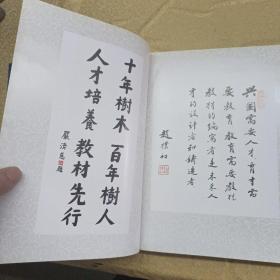 十年樹木 百年樹人
人才培養 教材先行
嚴濟慈題
興國需要人才育才需
要教育教育需要教材
教材的編寫者是未来人
才的设计者和铸造者
趙樸初